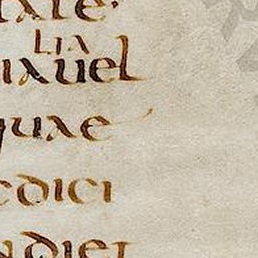 ixte.
LIA
mauel
quae
edici
ndiet